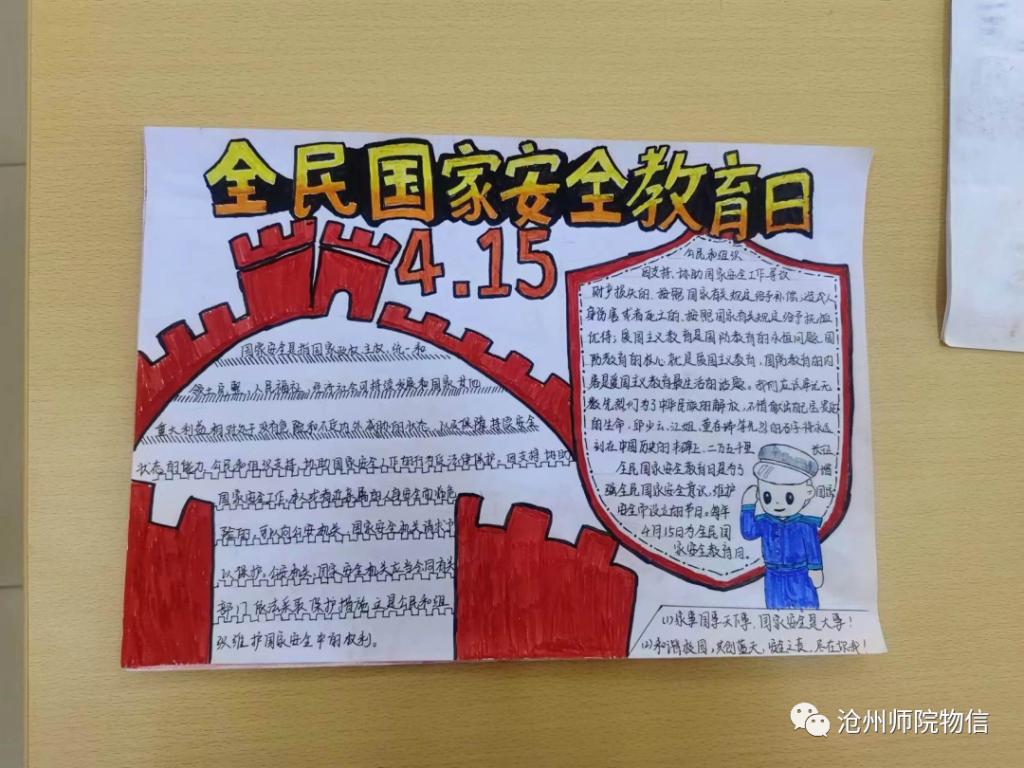 全民国家安全教育日
4.15
国家安全是指国家政权、主权、统一和
领土完整、人民福祉、经济社会可持续发展和国家其他
重大利益相对处于没有危险和不受内外威胁的状态，以及保障持续安全
状态的能力。公民和组织支持、协助国家安全工作的行为受法律保护。因支持、协助
国家安全工作，本人或者近亲属的人身安全面临危
险的，可以向公安机关、国家安全机关请求予
以保护。公安机关、国家安全机关应当会同有关
部门依法采取保护措施，这是公民和组
织维护国家安全中的权利。
公民和组织
因支持、协助国家安全工作导致
财产损失的，按照国家有关规定给予补偿；造成人
身伤害或者死亡的，按照国家有关规定给予抚恤
优待。爱国主义教育是国防教育的永恒问题。国
防教育的核心就是爱国主义教育，国防教育的内
容是爱国主义教育最生活的话题。我们应该牢记无
数先烈们为了中华民族的解放，不惜献出自己宝贵
的生命，邱少云、江姐、董存瑞等先烈的名字将永远
刻在中国历史的丰碑上，二万五千里 长征
全民国家安全教育日是为了 增
强全民国家安全意识，维护 国家
安全而设立的节日。每年
4月15日为全民国
家安全教育日。
(1)家事国事天下事，国家安全是大事！
(2)和谐校园，共创蓝天，安全之责，尽在你我！
沧州师院物信